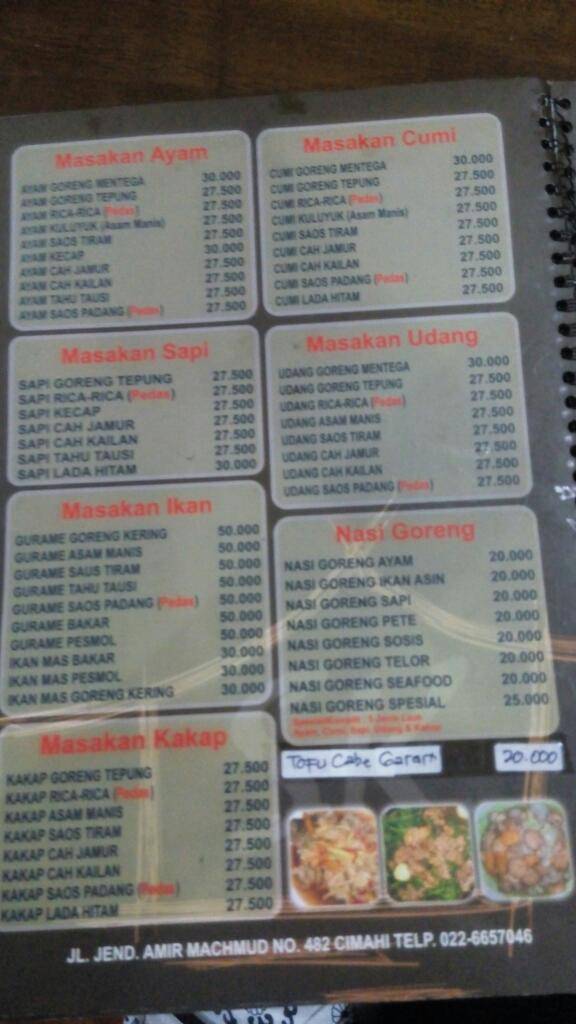 Masakan Ayam
AYAM GORENG MENTEGA 30.000
AYAM GORENG TEPUNG 27.500
AYAM RICA-RICA (Pedas) 27.500
AYAM KULUYUK (Asam Manis) 27.500
AYAM SAOS TIRAM 27.500
AYAM KECAP 30.000
AYAM CAH JAMUR 27.500
AYAM CAH KAILAN 27.500
AYAM TAHU TAUSI 27.500
AYAM SAOS PADANG (Pedas) 27.500
Masakan Cumi
CUMI GORENG MENTEGA 30.000
CUMI GORENG TEPUNG 27.500
CUMI RICA-RICA (Pedas) 27.500
CUMI KULUYUK (Asam Manis) 27.500
CUMI SAOS TIRAM 27.500
CUMI CAH JAMUR 27.500
CUMI CAH KAILAN 27.500
CUMI SAOS PADANG (Pedas) 27.500
CUMI LADA HITAM 27.500
Masakan Sapi
SAPI GORENG TEPUNG 27.500
SAPI RICA-RICA (Pedas) 27.500
SAPI KECAP 27.500
SAPI CAH JAMUR 27.500
SAPI CAH KAILAN 27.500
SAPI TAHU TAUSI 27.500
SAPI LADA HITAM 30.000
Masakan Udang
UDANG GORENG MENTEGA 30.000
UDANG GORENG TEPUNG 27.500
UDANG RICA-RICA (Pedas) 27.500
UDANG ASAM MANIS 27.500
UDANG SAOS TIRAM 27.500
UDANG CAH JAMUR 27.500
UDANG CAH KAILAN 27.500
UDANG SAOS PADANG (Pedas) 27.500
Masakan Ikan
GURAME GORENG KERING 50.000
GURAME ASAM MANIS 50.000
GURAME SAUS TIRAM 50.000
GURAME TAHU TAUSI 50.000
GURAME SAOS PADANG (Pedas) 50.000
GURAME BAKAR 50.000
GURAME PESMOL 50.000
IKAN MAS BAKAR 30.000
IKAN MAS PESMOL 30.000
IKAN MAS GORENG KERING 30.000
Nasi Goreng
NASI GORENG AYAM 20.000
NASI GORENG IKAN ASIN 20.000
NASI GORENG SAPI 20.000
NASI GORENG PETE 20.000
NASI GORENG SOSIS 20.000
NASI GORENG TELOR 20.000
NASI GORENG SEAFOOD 20.000
NASI GORENG SPESIAL 25.000
Ayam, Cumi, Sapi, Udang & Kakap
TOFU Cabe Garam 20.000
Masakan Kakap
KAKAP GORENG TEPUNG 27.500
KAKAP RICA-RICA (Pedas) 27.500
KAKAP ASAM MANIS 27.500
KAKAP SAOS TIRAM 27.500
KAKAP CAH JAMUR 27.500
KAKAP CAH KAILAN 27.500
KAKAP SAOS PADANG (Pedas) 27.500
KAKAP LADA HITAM 27.500
JL. JEND. AMIR MACHMUD NO. 482 CIMAHI TELP. 022-6657046